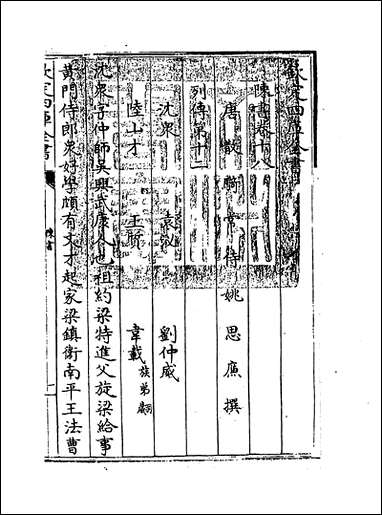 欽定四庫全書
陳書卷十八
唐散騎常侍姚思廉撰
列傳第十二
沈衆 袁泌 劉仲威
陸山才 王質 韋載族弟翽
沈衆字仲師吳興武康人也祖約梁特進父旋梁給事
黄門侍郎衆好學頗有文才起家梁鎮衛南平王法曹
欽定四庫全書
陳書